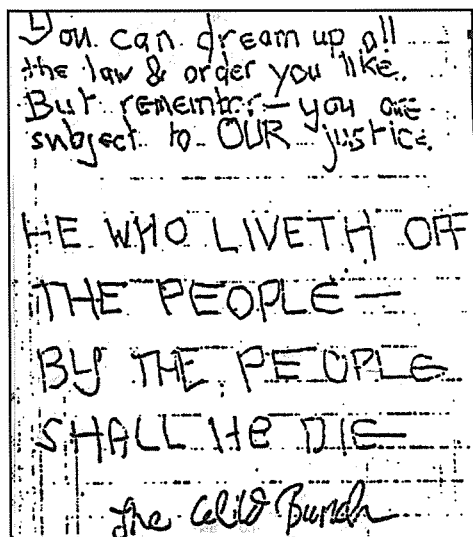 You can dream up all
the law & order you like.
But remember – you are
subject to OUR justice.
HE WHO LIVETH OFF
THE PEOPLE —
BY THE PEOPLE
SHALL HE DIE
The Wild Bunch